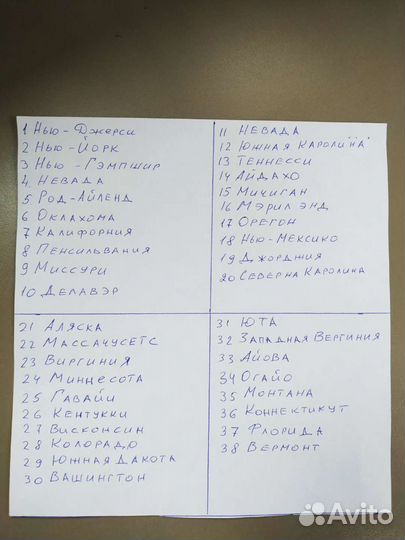 1 Нью-Джерси
2 Нью-Йорк
3 Нью-Гэмпшир
4. Невада
5 Род-Айленд
6 Оклахома
7 Калифорния
8 Пенсильвания
9 Миссури
10 Делавэр
11 Невада
12 Южная Каролина
13 Теннесси
14 Айдахо
15 Мичиган
16 Мэрилэнд
17 Орегон
18 Нью-Мексико
19 Джорджия
20 Северна Каролина
21 Аляска
22 Массачусетс
23 Виргиния
24 Миннесота
25 Гавайи
26 Кентукки
27 Висконсин
28 Колорадо
29 Южная Дакота
30 Вашингтон
31 Юта
32 Западная Вергиния
33 Айова
34 Огайо
35 Монтана
36 Коннектикут
37 Флорида
38 Вермонт
Avito